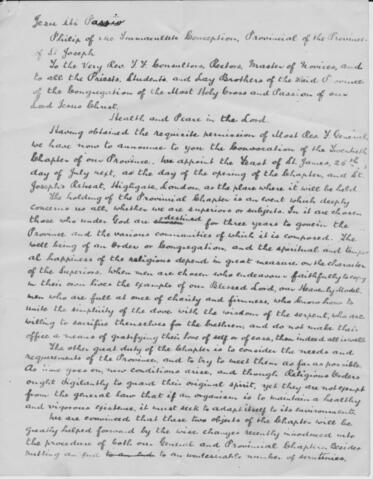 Jesu Xti Passio
Philip of the Immaculate Conception, Provincial of the Province
of St Joseph
To the Very Rev. F.F. Consultors, Rectors, Master of Novices, and
to all the Priests, Students and Lay Brothers of the said Province
of the Congregation of the Most Holy Cross and Passion of our
Lord Jesus Christ.
Health and Peace in the Lord.
Having obtained the requisite permission of Most Rev. F. General,
we have now to announce to you the Convocation of the Twentieth
Chapter of our Province. We appoint the Feast of St. James, 25th
day of July next, as the day of the opening of the Chapter, and St.
Joseph's Retreat, Highgate, London, as the place where it will be held.
The holding of the Provincial Chapter is an event which deeply
concerns us all, whether we are superiors or subjects. In it are chosen
those who under God are destined for three years to govern the
Province and the various communities of which it is composed. The
well being of an Order or Congregation, and the spiritual and temporal
happiness of the religious depend in great measure on the character
of the Superiors. When men are chosen who endeavour faithfully to copy
in their own lives the example of our Blessed Lord, our Heavenly Model,
men who are full at once of charity and firmness, who know how to
unite the simplicity of the dove with the wisdom of the serpent, who are
willing to sacrifice themselves for the brethren, and do not make their
office a means of gratifying their love of self or of ease, then indeed all is well
The other great duty of the Chapter is to consider the needs and
requirements of the Province, and to try to meet them as far as possible.
As time goes on new conditions arise, and though Religious Orders
ought diligently to guard their original spirit, yet they are not exempt
from the general law that if an organism is to maintain a healthy
and vigorous existence, it must seek to adapt itself to its environment.
We are convinced that these two objects of the Chapter will be
greatly helped forward by the wise changes recently introduced into
the procedure of both our General and Provincial Chapters. Besides
putting an end to an undesirable number of scrutinies,